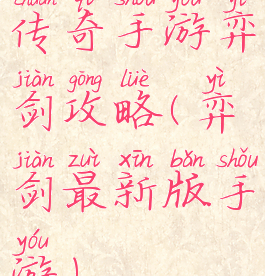 chuán qí shǒu yóu yì
传奇手游弈
jiàn gōng lüè yì
剑攻略(弈
jiàn zuì xīn bǎn shǒu
剑最新版手
yóu
游)